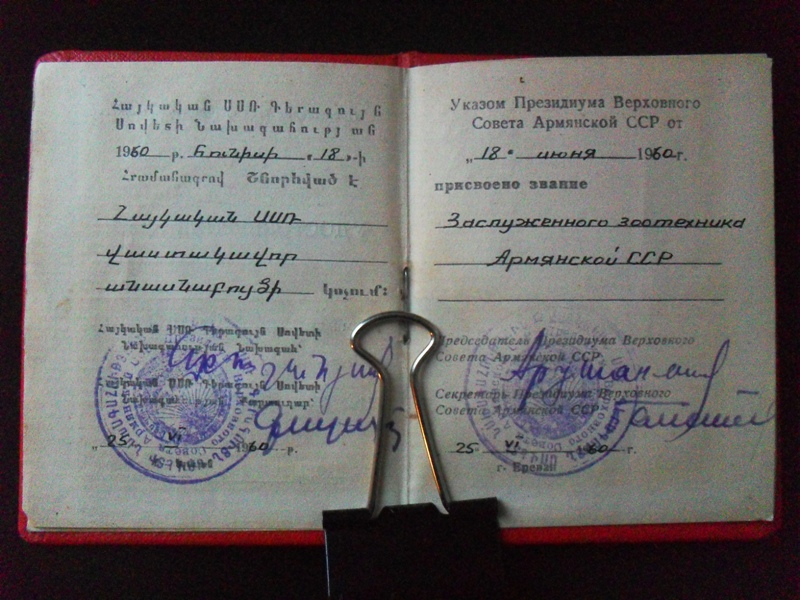 Հայկական ՍՍՌ Գերագույն
Սովետի Նախագահության
1960 թ. հունիսի «18»-ի
Հրամանագրով Շնորհված է
Հայկական ՍՍՌ
վաստակավոր
անասնաբույծի կոչում:
Հայկական ՍՍՌ Գերագույն Սովետի
Նախագահության Նախագահ՝
Հայկական ՍՍՌ Գերագույն Սովետի
Նախագահության Քարտուղար՝
„25 VI 1960 թ.
Указом Президиума Верховного
Совета Армянской ССР от
„18" июня 1960 г.
присвоено звание
Заслуженного зоотехника
Армянской ССР
Председатель Президиума Верховного
Совета Армянской ССР
Арутюнян
Секретарь Президиума Верховного
Совета Армянской ССР
25 VI 1960 г.
г. Ереван